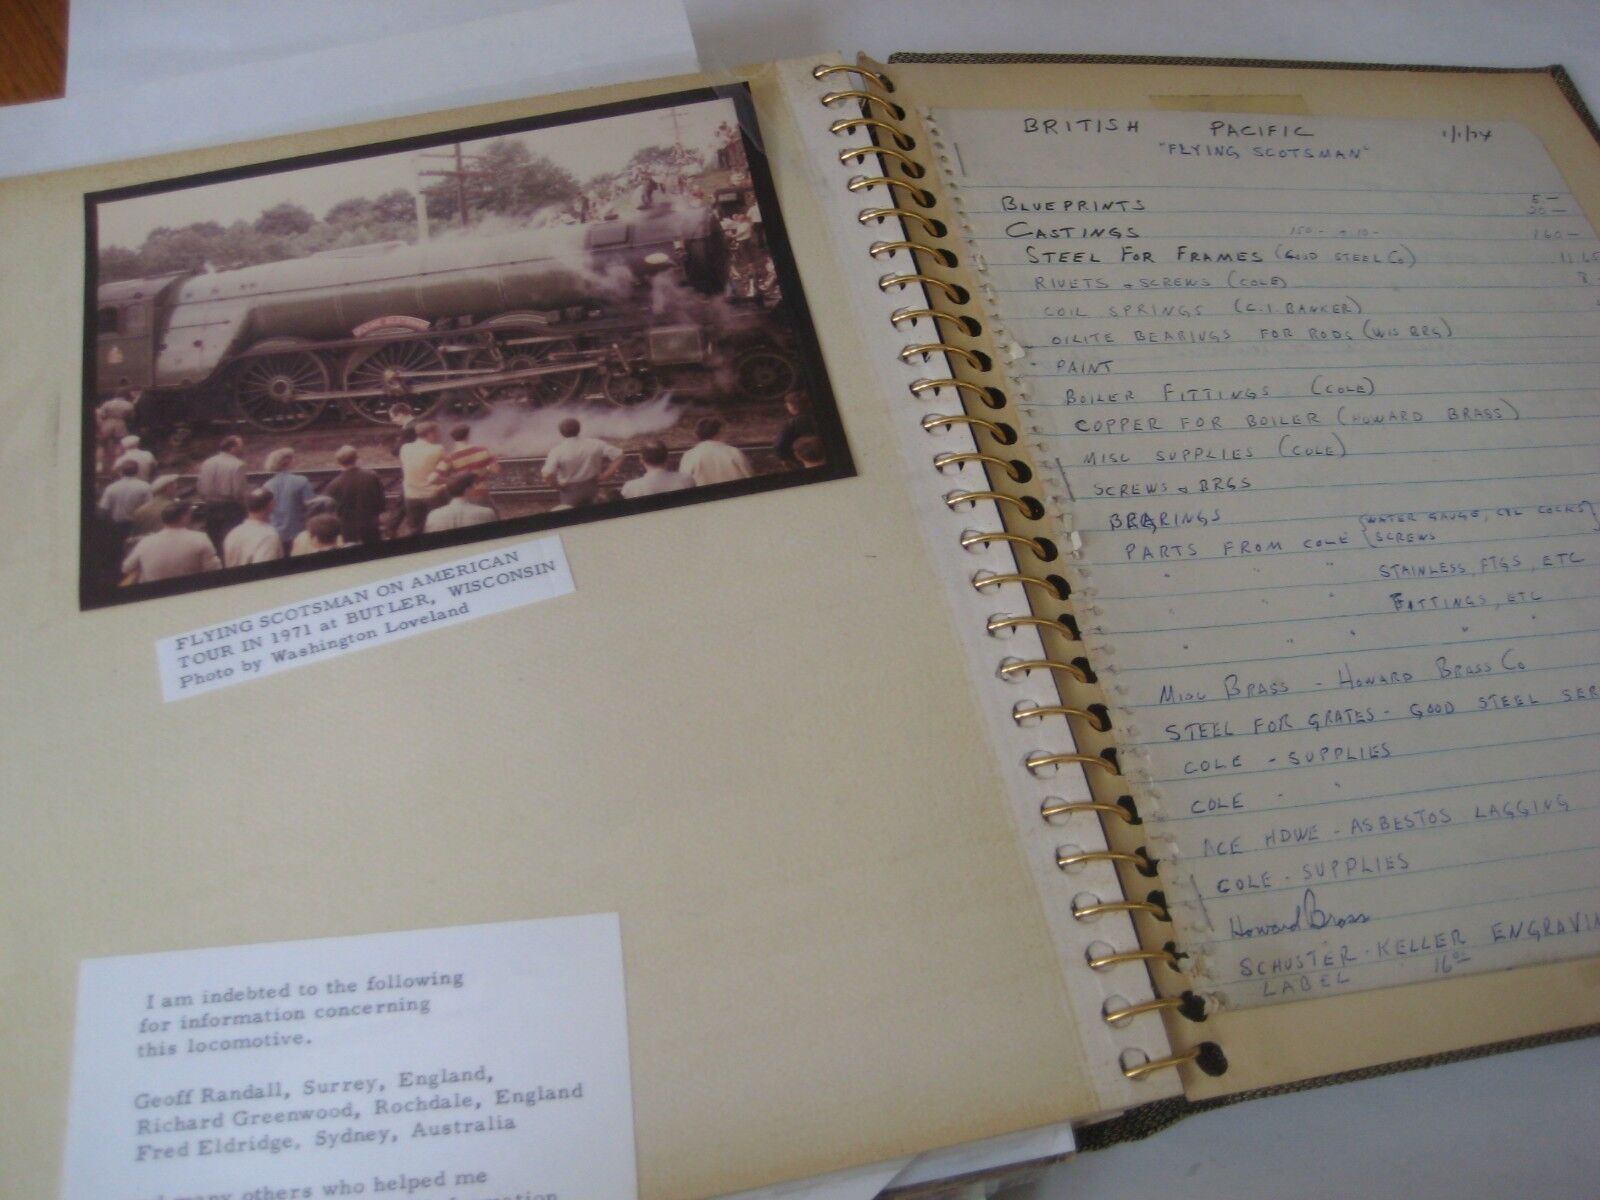 FLYING SCOTSMAN ON AMERICAN
TOUR IN 1971 at BUTLER, WISCONSIN
Photo by Washington Loveland
I am indebted to the following
for information concerning
this locomotive.
Geoff Randall, Surrey, England,
Richard Greenwood, Rochdale, England
Fred Eldridge, Sydney, Australia
many others who helped me
BRITISH PACIFIC 1/1/74
"FLYING SCOTSMAN"
BLUEPRINTS 5.—
20 —
CASTINGS 150 - + 10 - 160 —
STEEL FOR FRAMES (GOOD STEEL CO)
RIVETS & SCREWS (COLE)
COIL SPRINGS (C.I. BANKER)
OILITE BEARINGS FOR RODS (WIS BRG)
PAINT
BOILER FITTINGS (COLE)
COPPER FOR BOILER (HOWARD BRASS)
MISC SUPPLIES (COLE)
SCREWS & BRGS
BEARINGS
PARTS FROM COLE {WATER GAUGE, CYL COCKS}
SCREWS
" " " STAINLESS, FTGS, ETC
" " " FITTINGS, ETC
" " " " "
MISC BRASS - HOWARD BRASS CO
STEEL FOR GRATES - GOOD STEEL SER
COLE - SUPPLIES
COLE - "
ACE HDWE - ASBESTOS LAGGING
COLE - SUPPLIES
Howard Brass
SCHUSTER-KELLER ENGRAVIN
LABEL 16.00